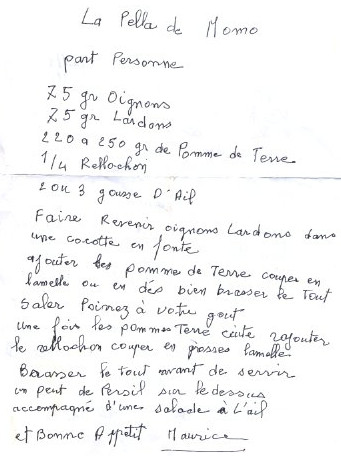 La Pella de Momo
part Personne
75 gr Oignons
75 gr Lardons
220 a 250 gr de Pomme de Terre
1/4 Rellochon
2 ou 3 gousse D'Ail
Faire Revenir oignons Lardons dans
une cocotte en fonte
ajouter les pomme de Terre couper en
lamelle ou en dés bien brasser le Tout
Saler Poivrez à votre gout
une fois les pommes Terre cuite rajouter
le rellochon couper en grosses lamelle
Brasser le tout avant de servir
un peut de Persil sur le dessus
accompagné d'une salade à L'ail
et Bonne Appetit Maurice